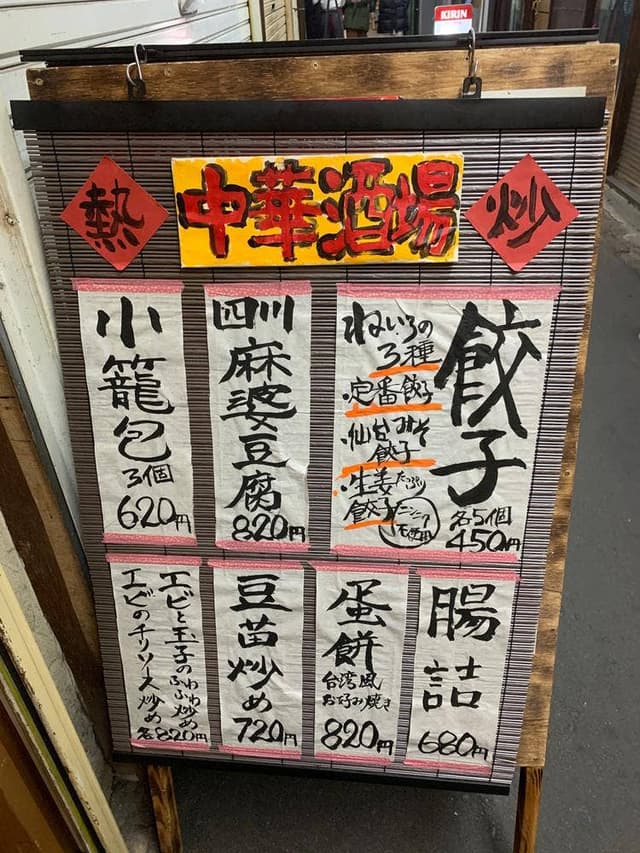 KIRIN
熱
中華酒場
炒
餃子
各5個
450円
ねいろの
3種
・定番餃子
・仙台みそ
餃子
・生姜たっぷり
餃子
ニンニク
不使用
四川
麻婆豆腐
820円
小籠包
3個
620円
腸詰
680円
蛋餅
台湾風
お好み焼き
820円
豆苗炒め
720円
エビと玉子のふわふわ炒め
エビのチリソース炒め
各820円